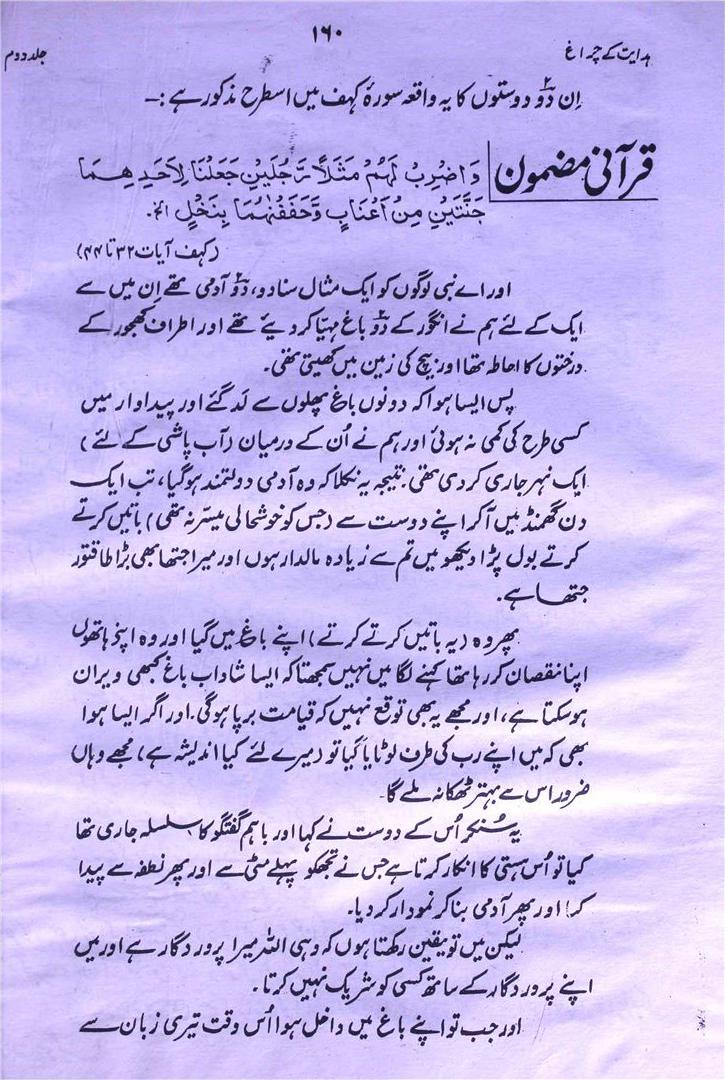 ہدایت کے چراغ
۱۶۰
جلد دوم
اِن دوؔ دوستوں کا یہ واقعہ سورۂ کہف میں اسطرح مذکور ہے :—
قرآنی مضمون
وَاضْرِبْ لَهُمْ مَثَلًا رَّجُلَيْنِ جَعَلْنَا لِاَحَدِهِمَا
جَنَّتَيْنِ مِنْ اَعْنَابٍ وَّحَفَفْنٰهُمَا بِنَخْلٍ الخ.
(کہف آیات ۳۲ تا ۴۴)
اور اے نبی لوگوں کو ایک مثال سنا دو، دوؔ آدمی تھے اِن میں سے
ایک کے لئے ہم نے انگور کے دوؔ باغ مہیّا کر دیئے تھے اور اطراف کھجور کے
درختوں کا احاطہ تھا اور بیچ کی زمین میں کھیتی تھی۔
پس ایسا ہوا کہ دونوں باغ پھلوں سے لَد گئے اور پیداوار میں
کسی طرح کی کمی نہ ہوئی اور ہم نے اُن کے درمیان (آب پاشی کے لئے)
ایک نہر جاری کر دی تھی. نتیجہ یہ نکلا کہ وہ آدمی دولتمند ہو گیا، تب ایک
دن گھمنڈ میں آکر اپنے دوست سے (جس کو خوشحالی میسّر نہ تھی) باتیں کرتے
کرتے بول پڑا دیکھو میں تم سے زیادہ مالدار ہوں اور میرا جتھا بھی بڑا طاقتور
جتھا ہے۔
پھر وہ (یہ باتیں کرتے کرتے) اپنے باغ میں گیا اور وہ اپنے ہاتھوں
اپنا نقصان کر رہا تھا کہنے لگا میں نہیں سمجھتا کہ ایسا شاداب باغ کبھی ویران
ہو سکتا ہے، اور مجھے یہ بھی توقع نہیں کہ قیامت برپا ہوگی. اور اگر ایسا ہوا
بھی کہ میں اپنے رب کی طرف لوٹایا گیا تو (میرے لئے کیا اندیشہ ہے) مجھے وہاں
ضرور اس سے بہتر ٹھکانہ ملے گا۔
یہ سُنکر اُس کے دوست نے کہا اور باہم گفتگو کا سلسلہ جاری تھا
کیا تو اُس ہستی کا انکار کرتا ہے جس نے تجھکو پہلے مٹی سے اور پھر نطفہ سے پیدا
کیا اور پھر آدمی بنا کر نمودار کر دیا۔
لیکن میں تو یقین رکھتا ہوں کہ وہی اللہ میرا پروردگار ہے اور میں
اپنے پروردگار کے ساتھ کسی کو شریک نہیں کرتا۔
اور جب تو اپنے باغ میں داخل ہوا اُس وقت تیری زبان سے